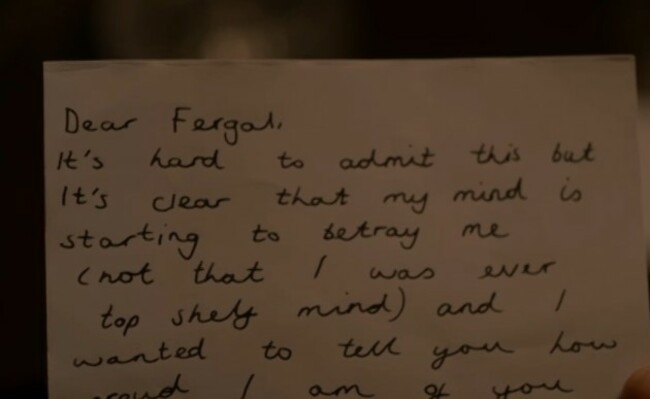 Dear Fergal,
It's hard to admit this but
It's clear that my mind is
starting to betray me
(not that I was ever
top shelf mind) and I
wanted to tell you how
proud I am of you